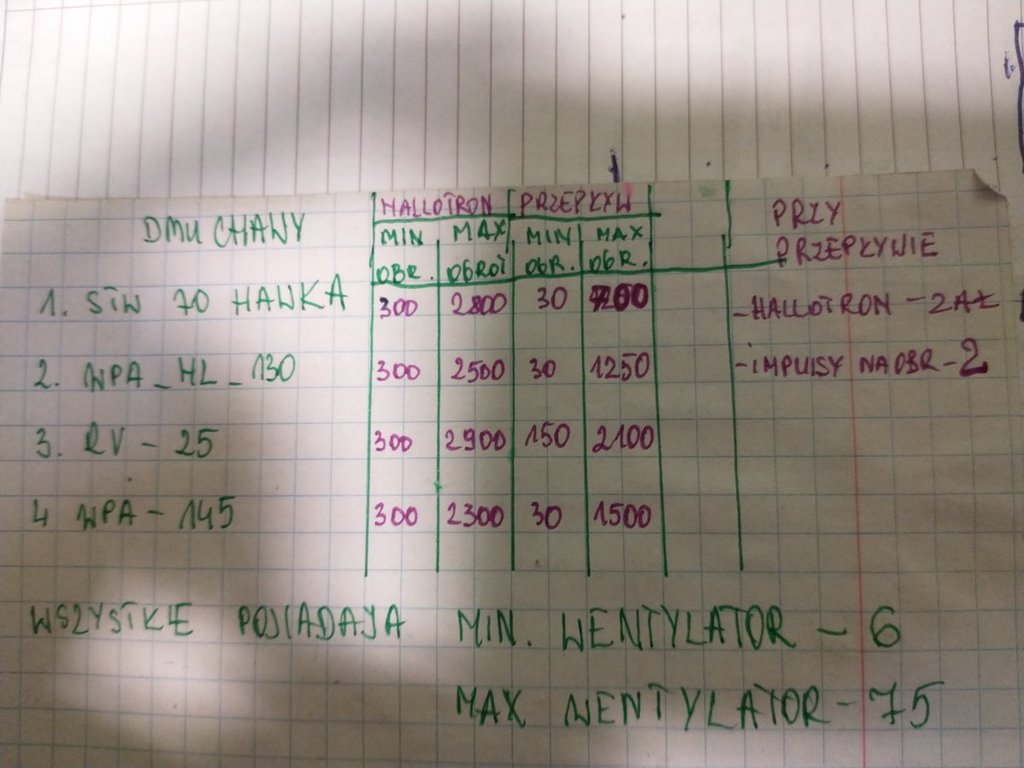 DMUCHAWY HALLOTRON PRZEPŁYW PRZY
MIN MAX MIN MAX PRZEPŁYWIE
OBR. OBROT OBR. OBR.
1. STW 70 HAWKA 300 2800 30 -HALLOTRON - ZAŁ
2. WPA_HL_130 300 2500 30 1250 -IMPULSY NA OBR - 2
3. RV - 25 300 2900 150 2100
4 WPA - 145 300 2300 30 1500
WSZYSTKIE POSIADAJA MIN. WENTYLATOR - 6
MAX WENTYLATOR - 75